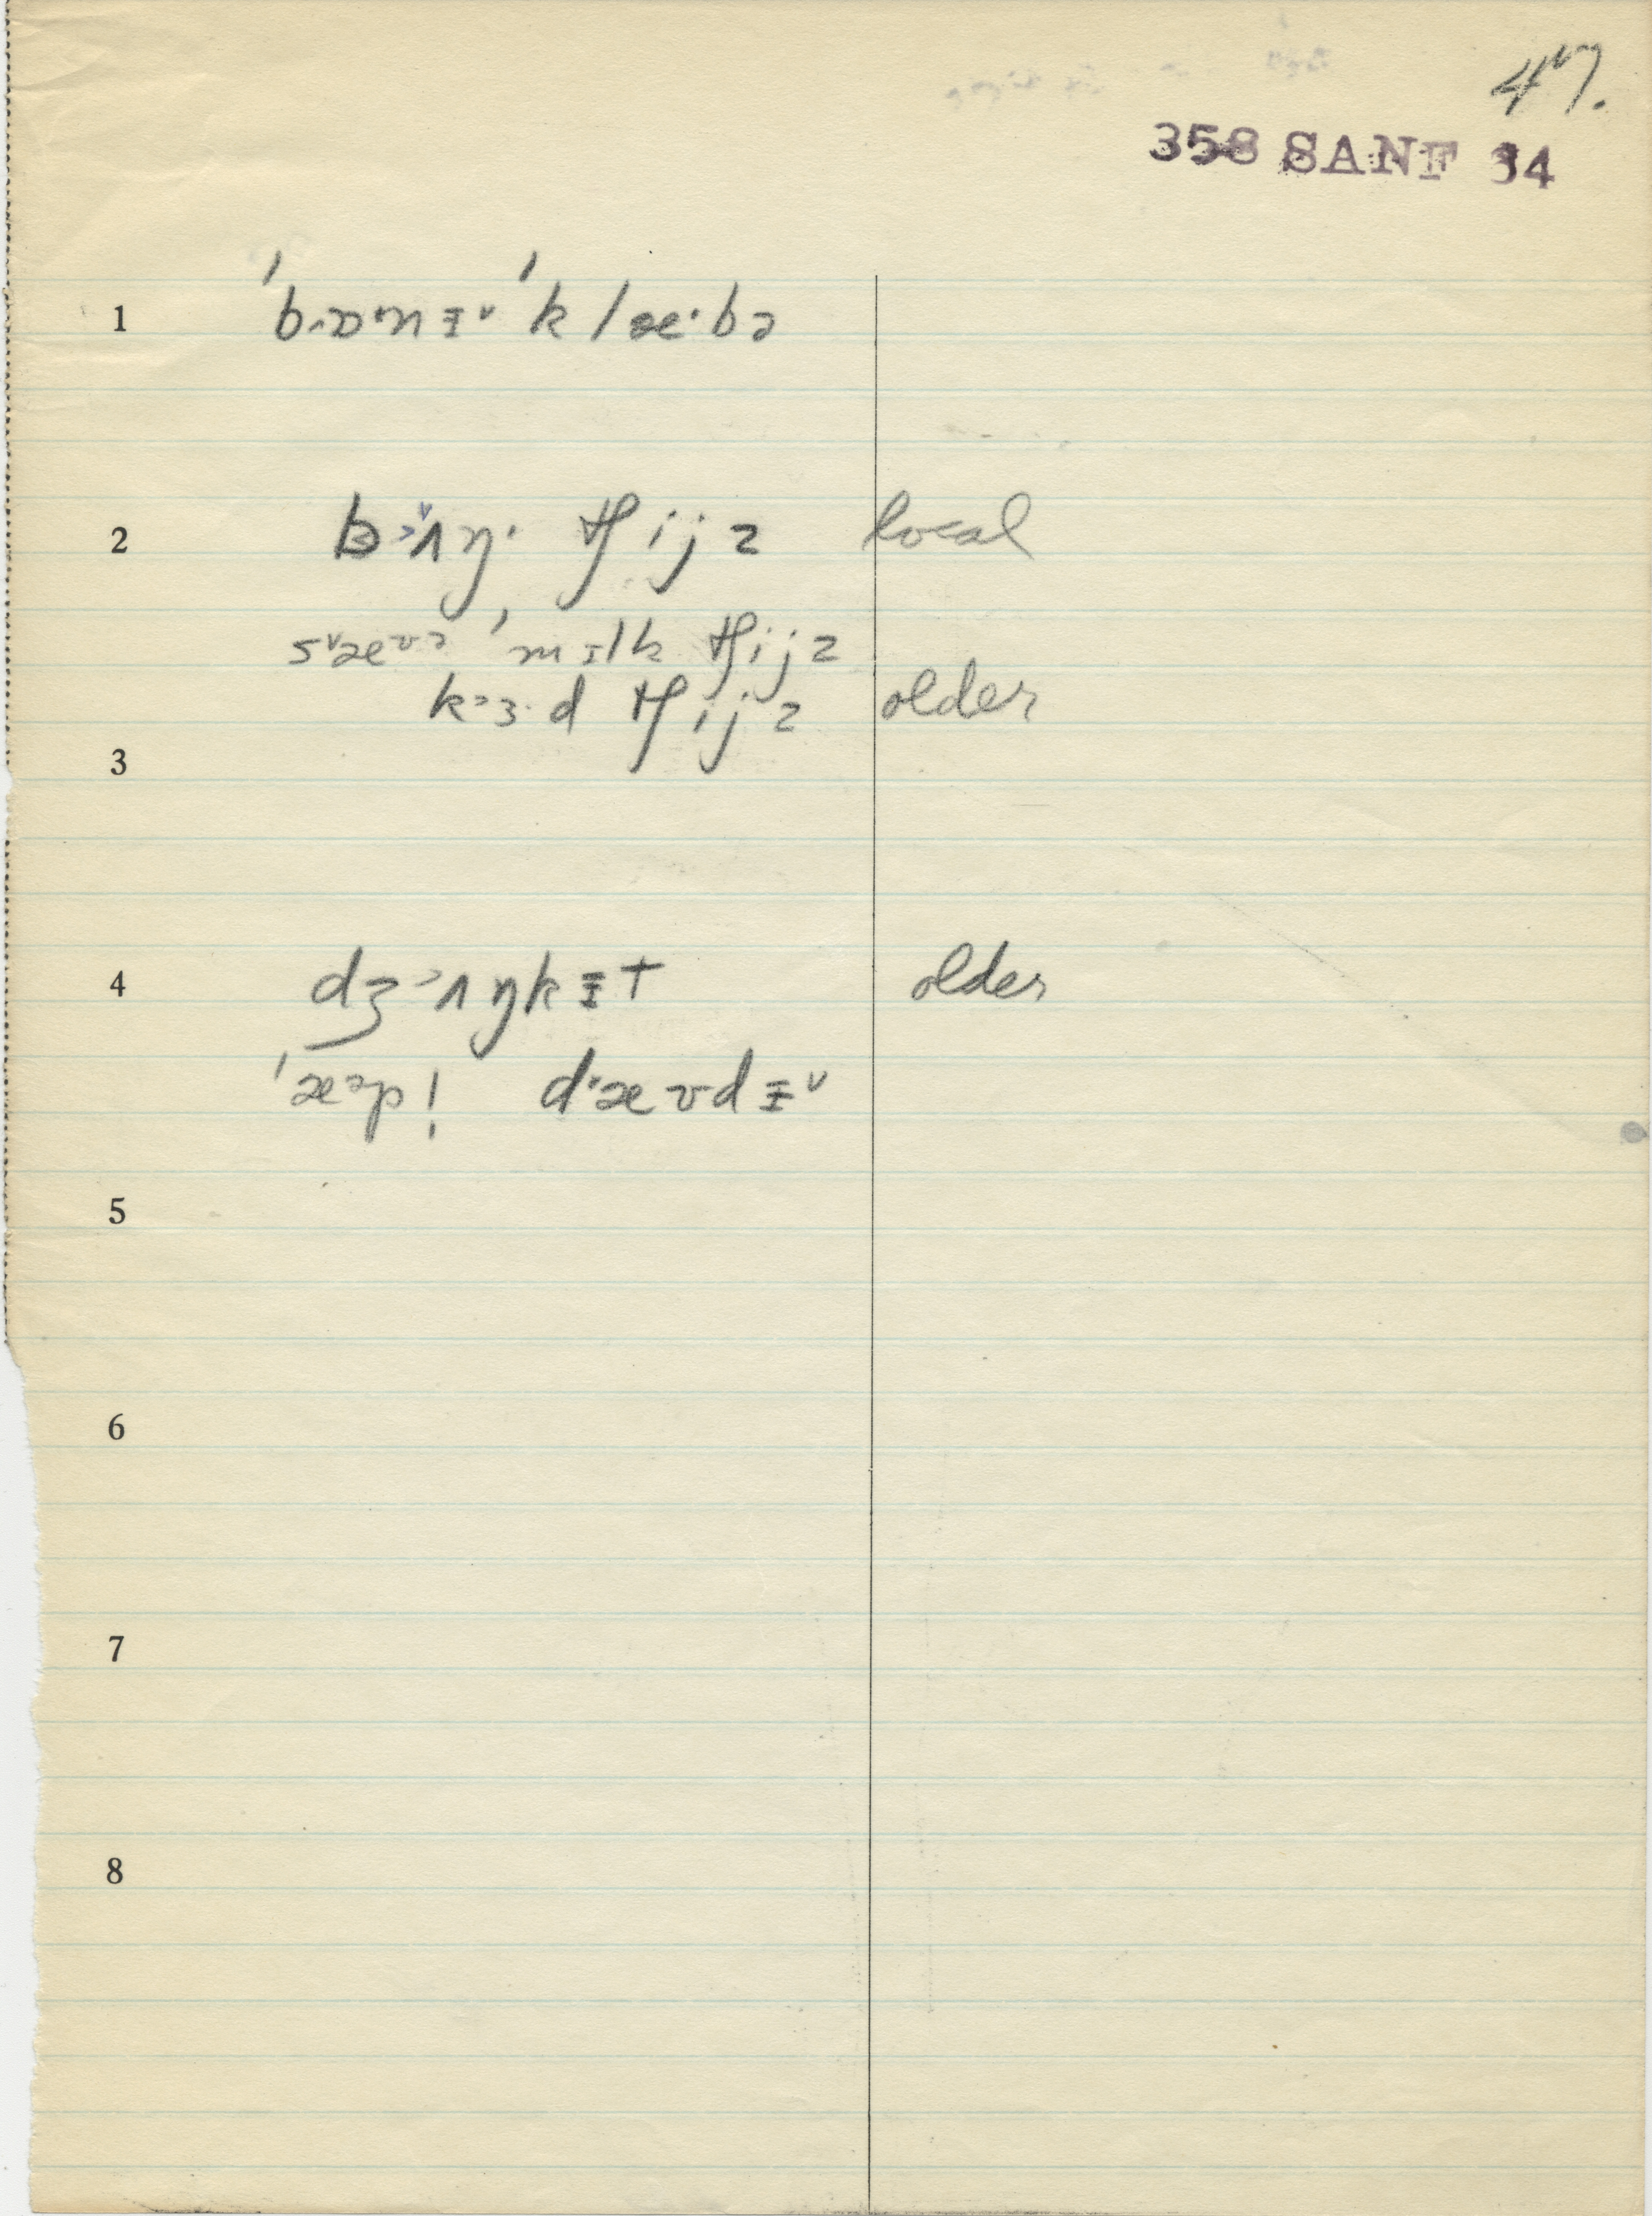 47.
358 SANF 34
1 ˈbɒ·nɪ˅ ˈklæ·bə
2 b˃ʌŋ· tʃijz local
s˅æʊə ˈmɪlk tʃijz
k˃ɜ·d tʃijz older
3
4 dʒ˃ʌŋkɪt older
ˈæ˃p! d·æʊdɪ˅
5
6
7
8